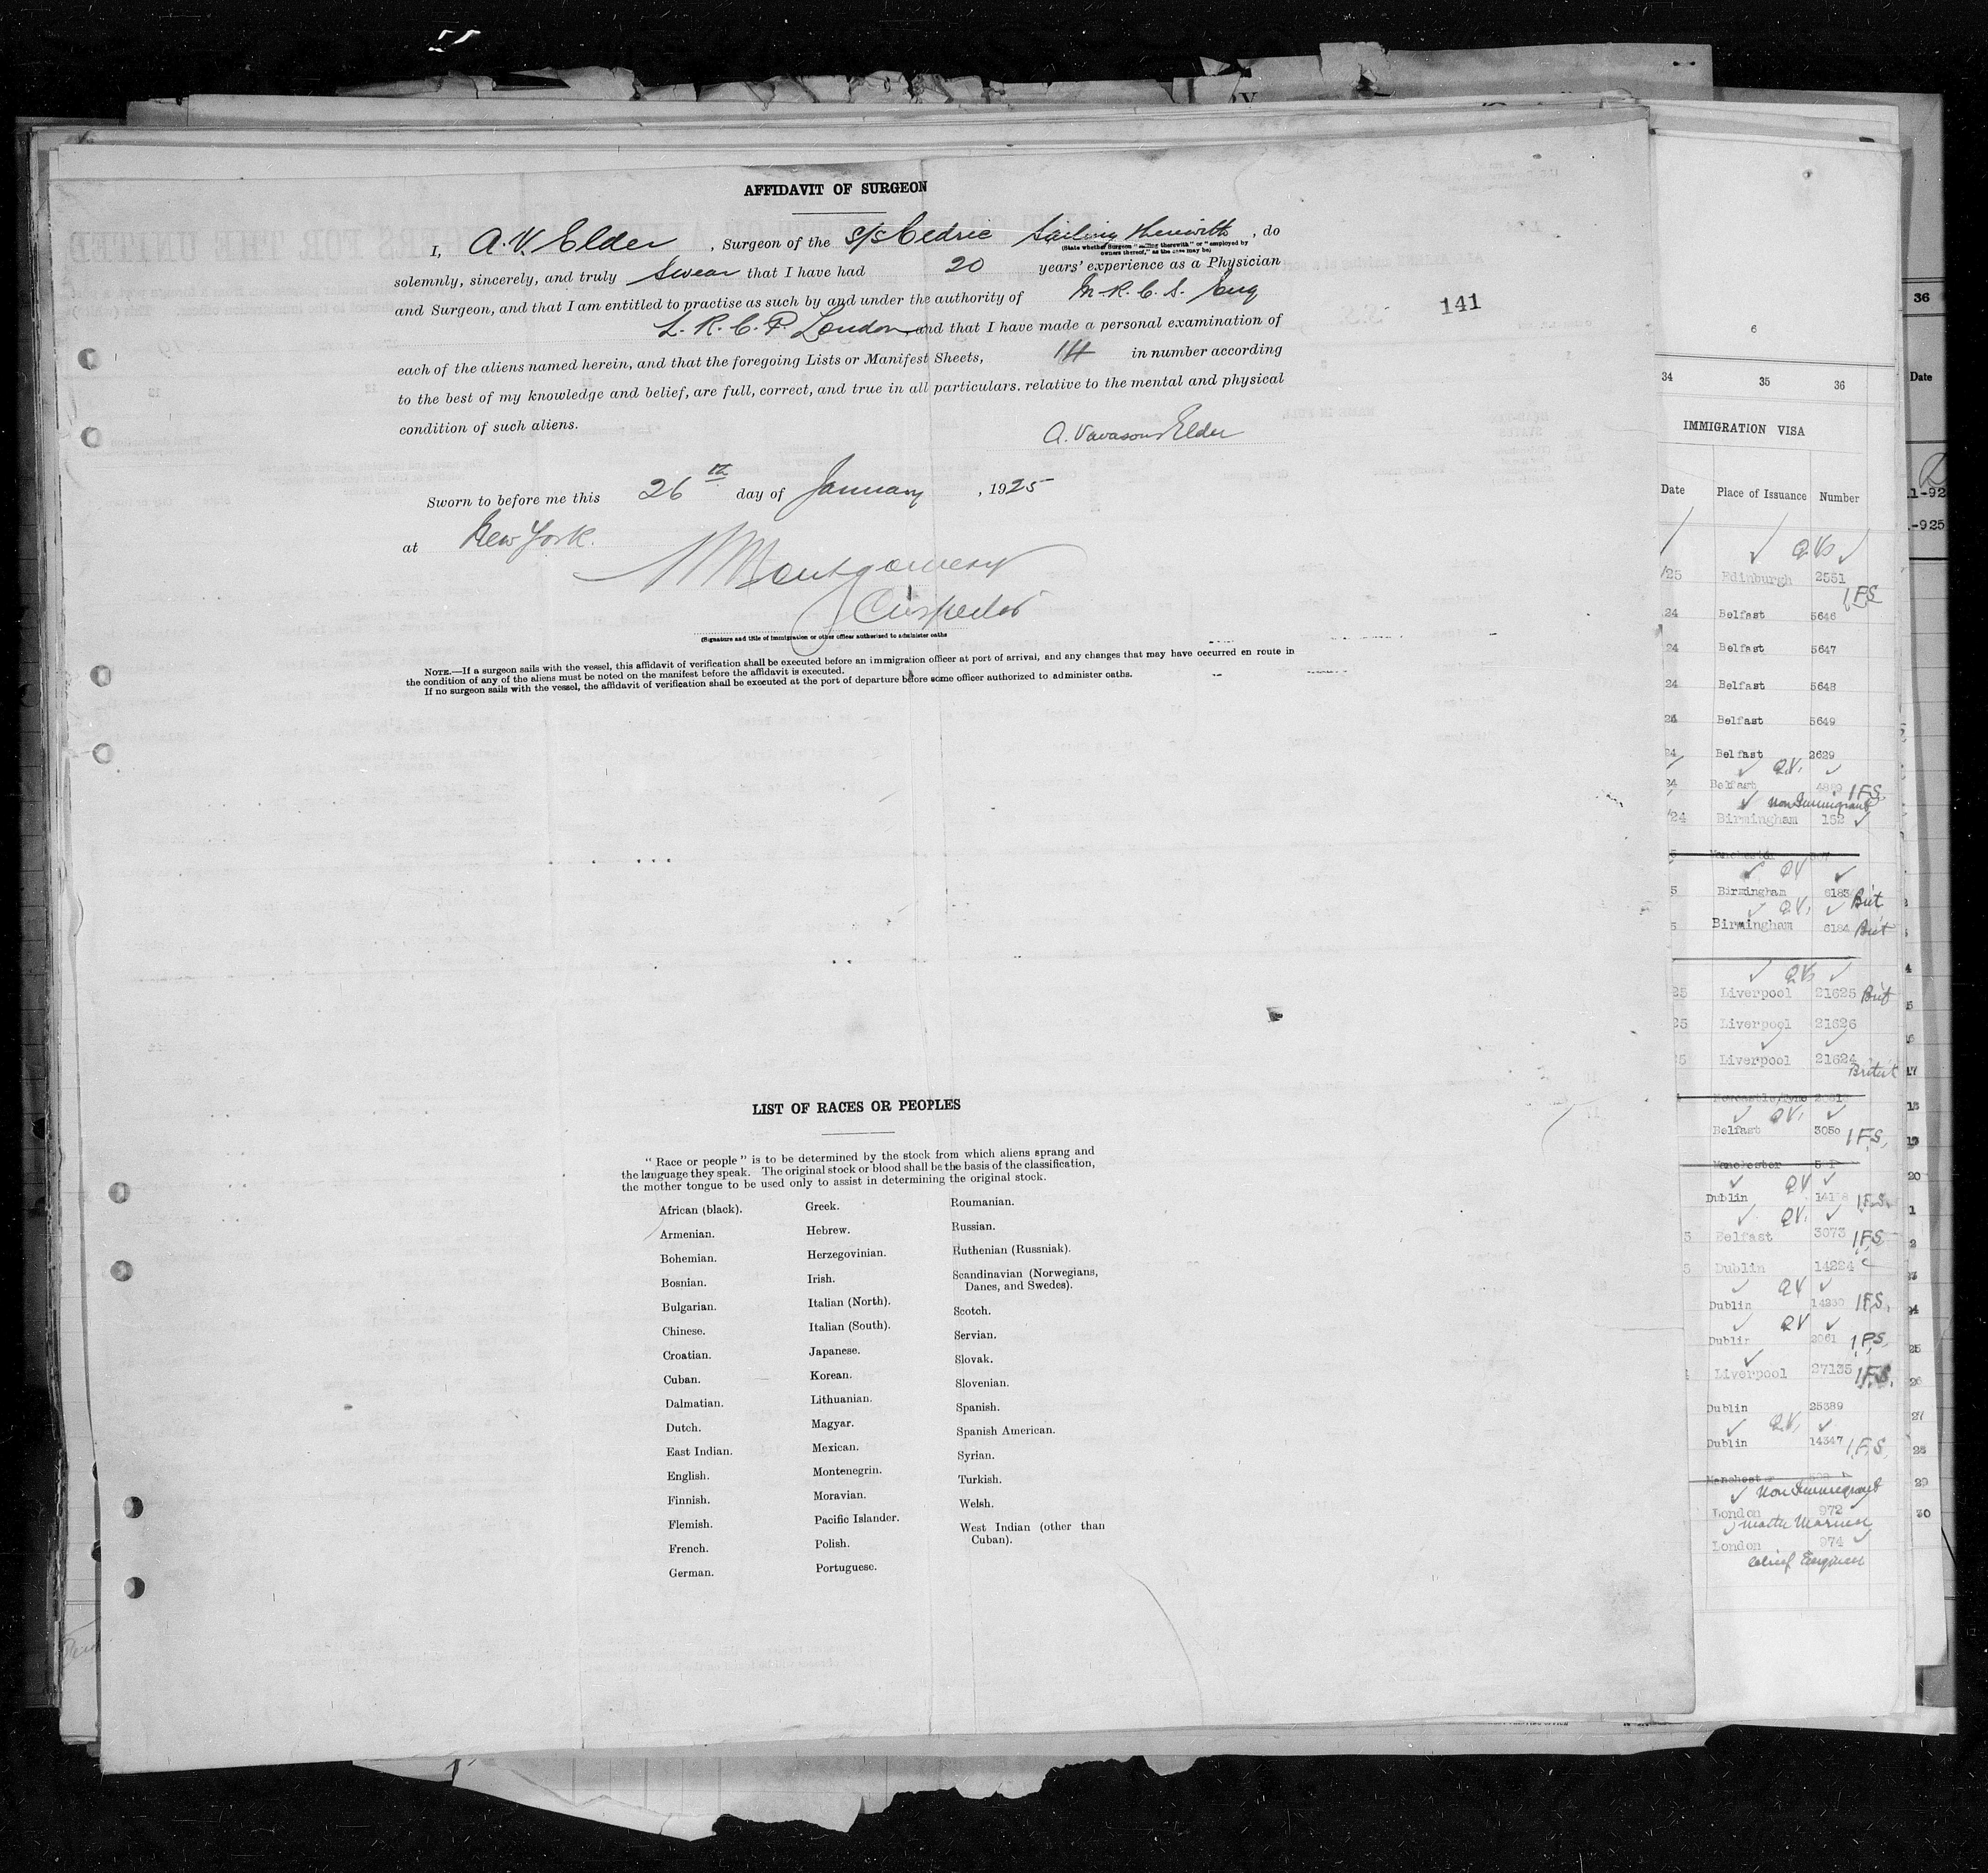 AFFIDAVIT OF SURGEON
I, A. V. Elder, Surgeon of the s/s Cedric Sailing therewith, do
(State whether Surgeon "sailing therewith" or "employed by
owners thereof," as the case may be)
solemnly, sincerely, and truly swear that I have had 20 years' experience as a Physician
and Surgeon, and that I am entitled to practise as such by and under the authority of M.R.C.S. Eng
L.R.C.P. London and that I have made a personal examination of
141
each of the aliens named herein, and that the foregoing Lists or Manifest Sheets, 14 in number according
to the best of my knowledge and belief, are full, correct, and true in all particulars. relative to the mental and physical
condition of such aliens.
A. Vavasour Elder
Sworn to before me this 26th day of January, 1925
at New York.
Montgomery
Inspector
(Signature and title of immigration or other officer authorized to administer oaths
NOTE.—If a surgeon sails with the vessel, this affidavit of verification shall be executed before an immigration officer at port of arrival, and any changes that may have occurred en route in
the condition of any of the aliens must be noted on the manifest before the affidavit is executed.
If no surgeon sails with the vessel, the affidavit of verification shall be executed at the port of departure before some officer authorized to administer oaths.
LIST OF RACES OR PEOPLES
"Race or people" is to be determined by the stock from which aliens sprang and
the language they speak. The original stock or blood shall be the basis of the classification,
the mother tongue to be used only to assist in determining the original stock.
African (black).
Armenian.
Bohemian.
Bosnian.
Bulgarian.
Chinese.
Croatian.
Cuban.
Dalmatian.
Dutch.
East Indian.
English.
Finnish.
Flemish.
French.
German.
Greek.
Hebrew.
Herzegovinian.
Irish.
Italian (North).
Italian (South).
Japanese.
Korean.
Lithuanian.
Magyar.
Mexican.
Montenegrin.
Moravian.
Pacific Islander.
Polish.
Portuguese.
Roumanian.
Russian.
Ruthenian (Russniak).
Scandinavian (Norwegians,
Danes, and Swedes).
Scotch.
Servian.
Slovak.
Slovenian.
Spanish.
Spanish American.
Syrian.
Turkish.
Welsh.
West Indian (other than
Cuban).
6
34 35 36
IMMIGRATION VISA
Date Place of Issuance Number
Q.V.
/25 Edinburgh 2551
I.F.S
24 Belfast 5646
24 Belfast 5647
24 Belfast 5648
24 Belfast 5649
24 Belfast 2629
Q.V.
24 Belfast I.F.S.
Non Immigrant
/24 Birmingham 152
Manchester
QV
5 Birmingham 6183 Brit
Q.V.
5 Birmingham 6184 Brit
Q.V.
25 Liverpool 21625 Brit
25 Liverpool 21626
25 Liverpool 21624
British
Newcastle/Tyne
Q.V.
Belfast 3050 I.F.S.
Manchester
QV
Dublin I.F.S.
QV.
3 Belfast 3073 I.F.S
5 Dublin 14224
QV
Dublin 14230 I.F.S.
QV
Dublin 2061 I.F.S.
Liverpool 27135 I.F.S.
Dublin 25389
Q.V.
Dublin 14347 I.F.S
Manchester
Non Immigrant
London 972
Master Mariner
London 974
Chief Engineer
36
Date
1-92
-925
20
24
25
26
27
29
30